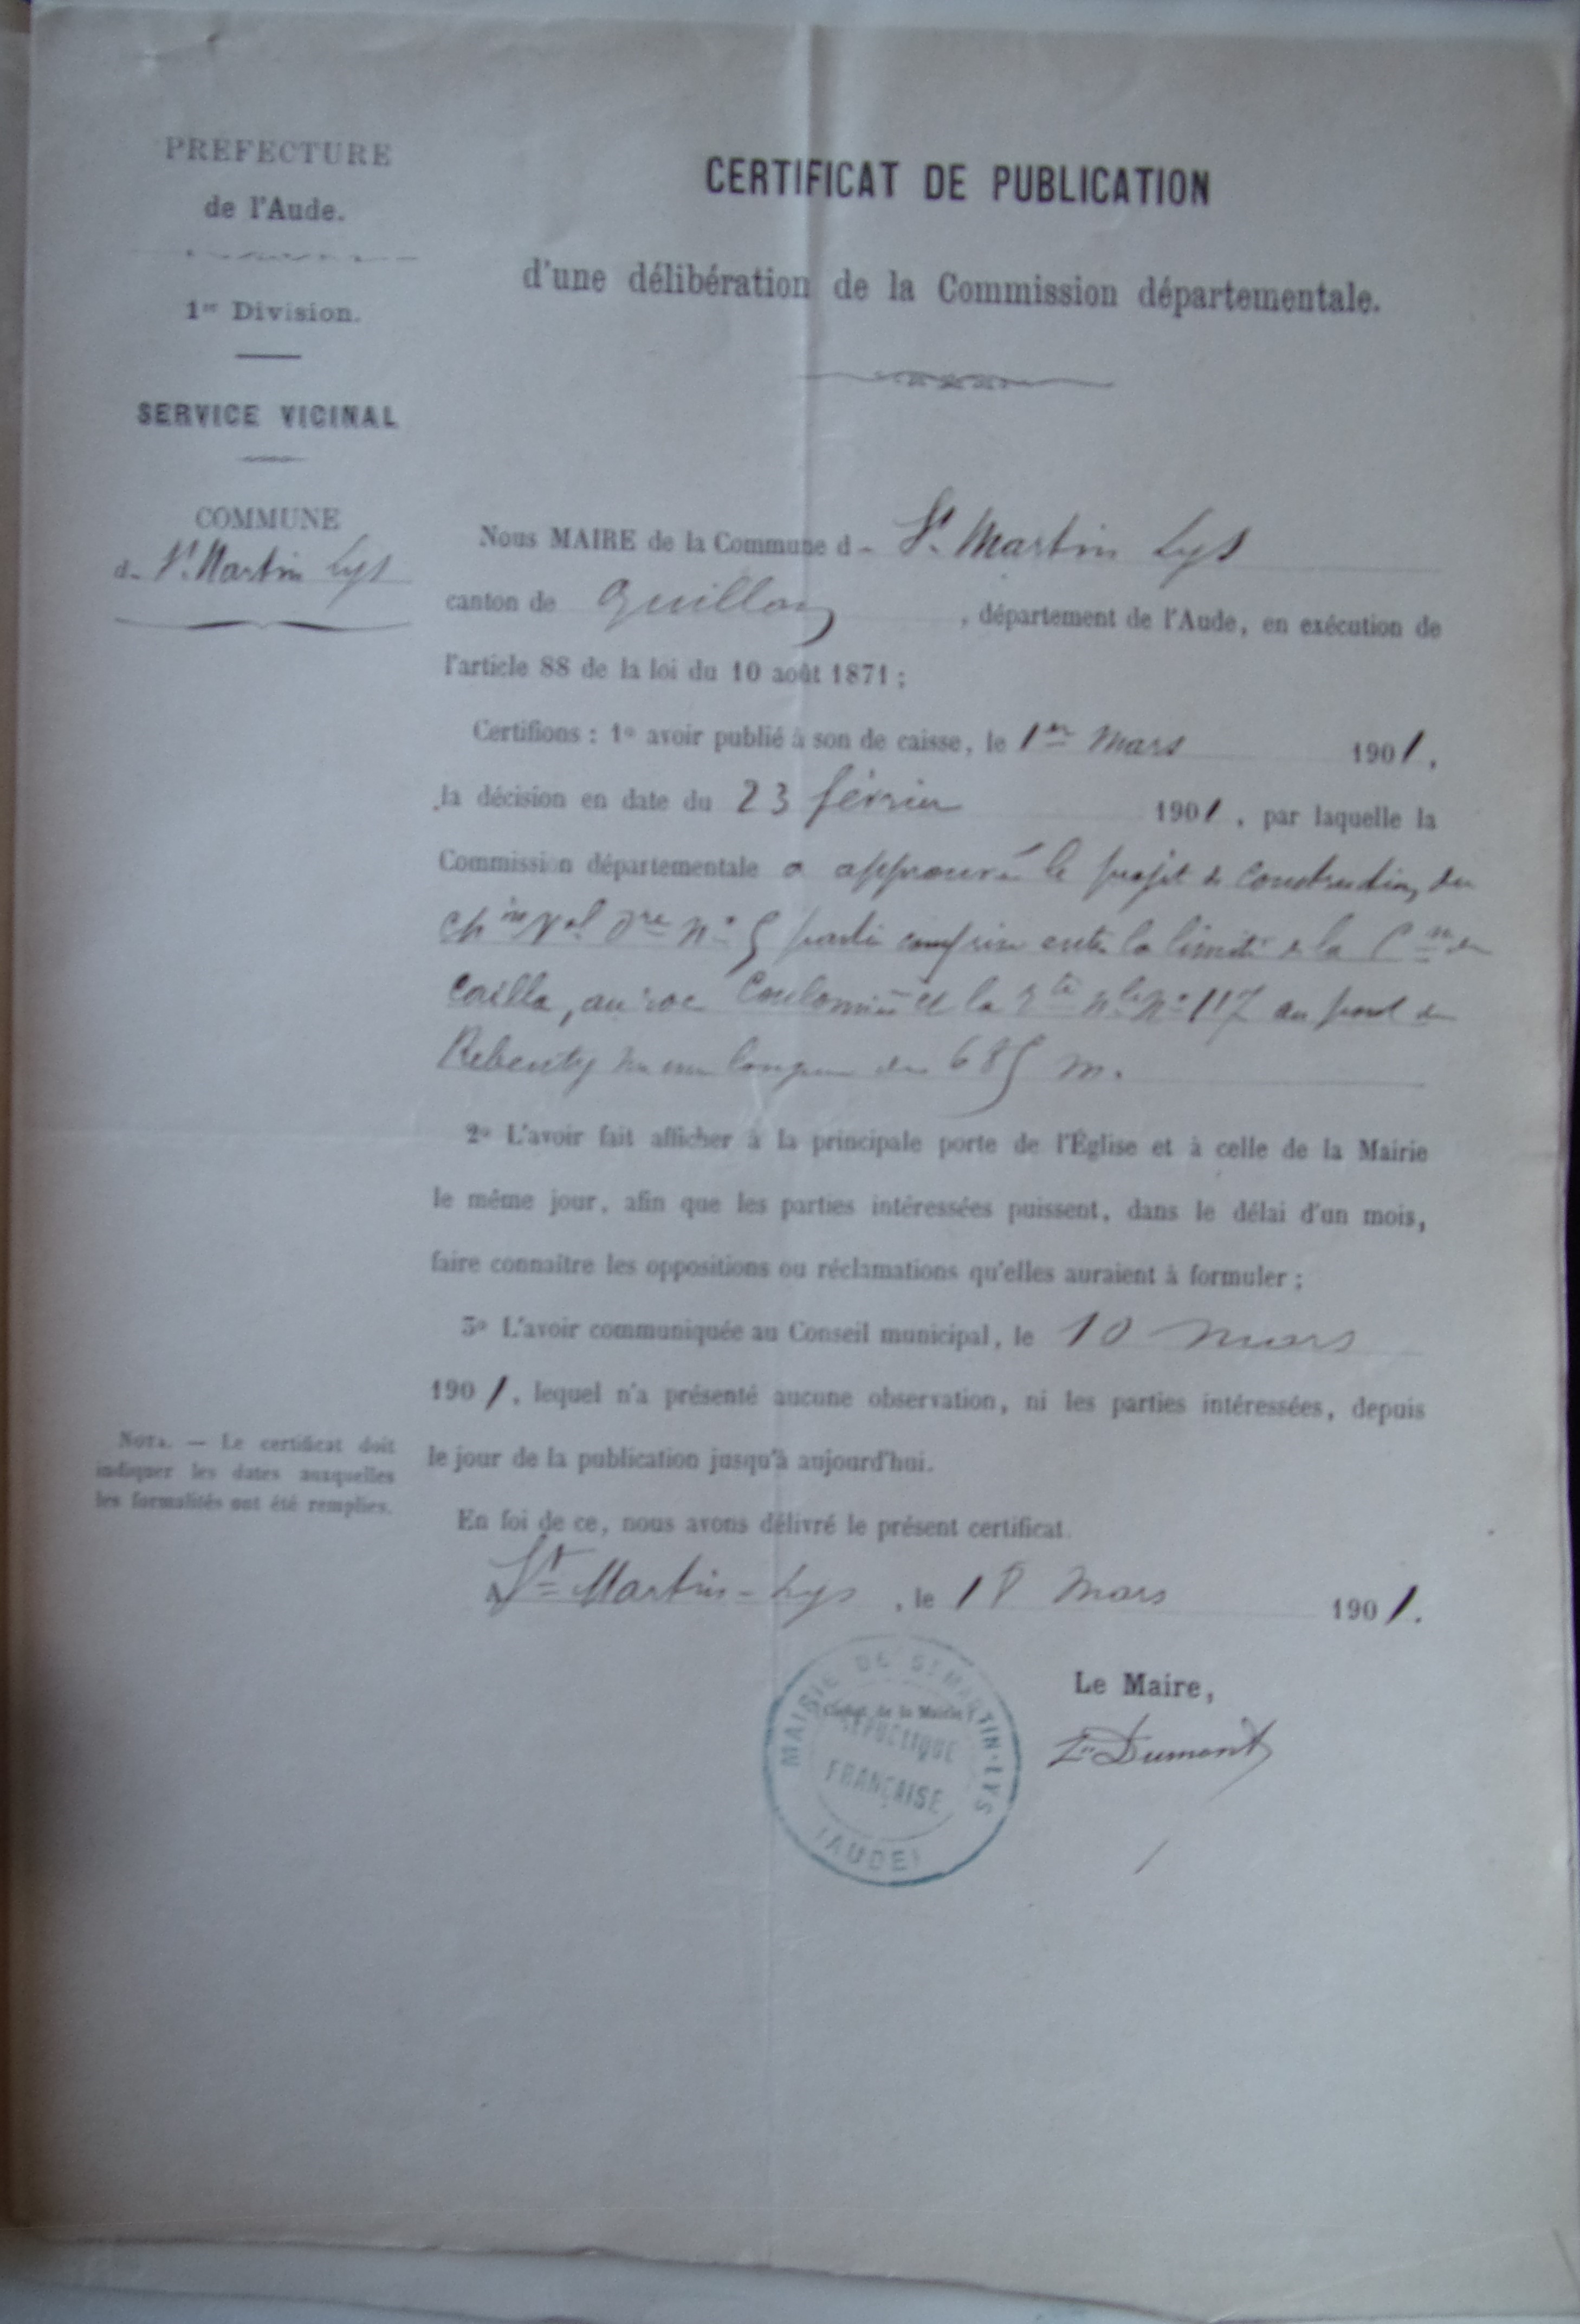 PREFECTURE
de l'Aude.
1re Division.
SERVICE VICINAL
COMMUNE
d- St. Martin Lys
CERTIFICAT DE PUBLICATION
d'une délibération de la Commission départementale.
Nous MAIRE de la Commune d- St. Martin Lys
canton de Quillan, département de l'Aude, en exécution de
l'article 88 de la loi du 10 août 1871 ;
Certifions : 1º avoir publié à son de caisse, le 1er Mars 1901,
la décision en date du 23 février 1901, par laquelle la
Commission départementale a approuvé le projet de construction du
chin val Ore Nº 5 partie comprise entre la limite de la Cne de
Cailla, au roc et la Rte Nle Nº 117 au pont de
Rebenty sur une longueur de 685 m.
2º L'avoir fait afficher à la principale porte de l'Église et à celle de la Mairie
le même jour, afin que les parties intéressées puissent, dans le délai d'un mois,
faire connaître les oppositions ou réclamations qu'elles auraient à formuler ;
3º L'avoir communiquée au Conseil municipal, le 10 mars
1901, lequel n'a présenté aucune observation, ni les parties intéressées, depuis
le jour de la publication jusqu'à aujourd'hui.
NOTA. — Le certificat doit
indiquer les dates auxquelles
les formalités ont été remplies.
En foi de ce, nous avons délivré le présent certificat.
A St Martin-Lys, le 18 Mars 1901.
Le Maire,
Dumont
(Cachet de la Mairie)
MAIRIE DE ST MARTIN-LYS
RÉPUBLIQUE
FRANÇAISE
(AUDE)